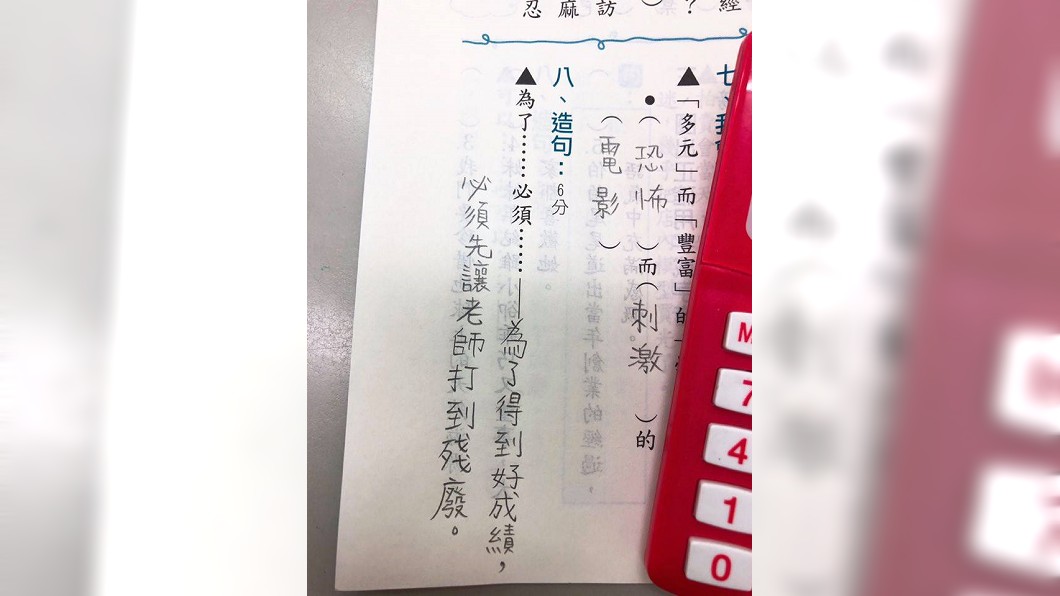 經
？
（
訪
麻
忍
七、
▲「多元」而「豐富」的
●（恐怖）而（刺激）的
（電影）
八、造句：6分
▲為了……必須……——為了得到好成績，
必須先讓老師打到殘廢。
M
7
4
1
0